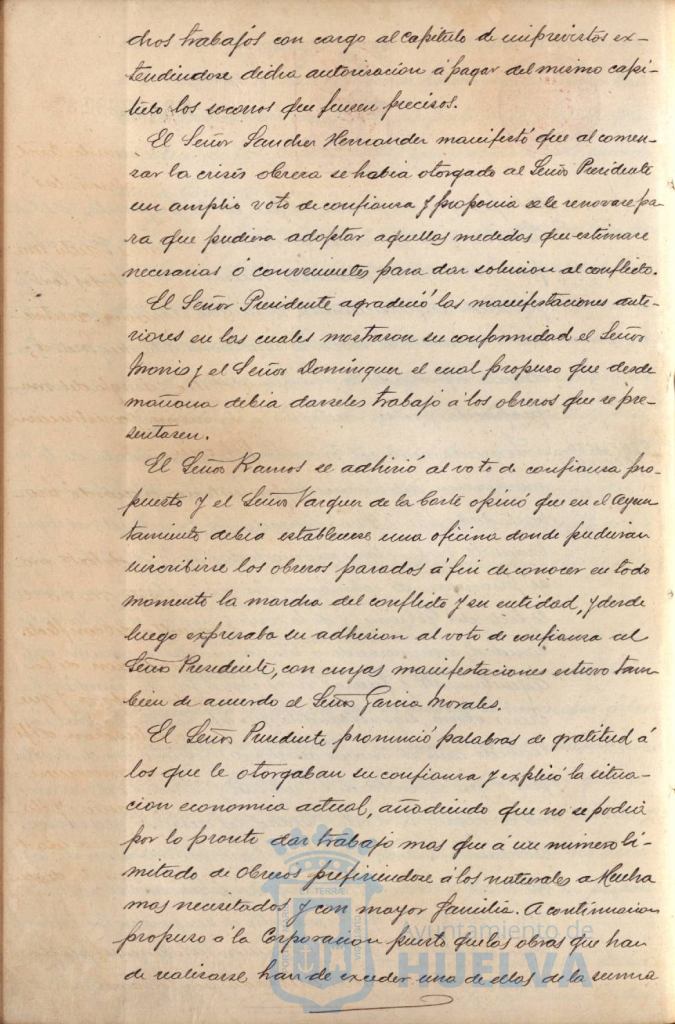 chos trabajos con cargo al Capitulo de imprevistos ex-
tendiendose dicha autorizacion á pagar del mismo capi-
tulo los socorros que fuesen precisos.
El Señor Sanchez Hernandez manifestó que al comen-
zar la crisis obrera se habia otorgado al Señor Presidente
un amplio voto de confianza y proponia se le renovase pa-
ra que pudiera adoptar aquellas medidas que estimase
necesarias ó convenientes para dar solucion al conflicto.
El Señor Presidente agradeció las manifestaciones ante-
riores en las cuales mostraron su conformidad el Señor
Monis y el Señor Dominguez el cual propuso que desde
mañana debia darseles trabajo á los obreros que se pre-
sentasen.
El Señor Ramos se adhirió al voto de confianza pro-
puesto y el Señor Vazquez de la Corte opinó que en el Ayun-
tamiento debia establecerse una oficina donde pudieran
inscribirse los obreros parados á fin de conocer en todo
momento la marcha del conflicto y su entidad, y desde
luego expresaba su adhesion al voto de confianza al
Señor Presidente, con cuyas manifestaciones estuvo tam-
bien de acuerdo el Señor Garcia Morales.
El Señor Presidente pronunció palabras de gratitud á
los que le otorgaban su confianza y explicó la situa-
cion economica actual, añadiendo que no se podia
por lo pronto dar trabajo mas que á un numero li-
mitado de obreros prefiriendose á los naturales de Huelva
mas necesitados y con mayor familia. A continuacion
propuso á la Corporacion puesto que las obras que han
de realizarse, han de exceder una de ellas de la suma
Ayuntamiento de
HUELVA